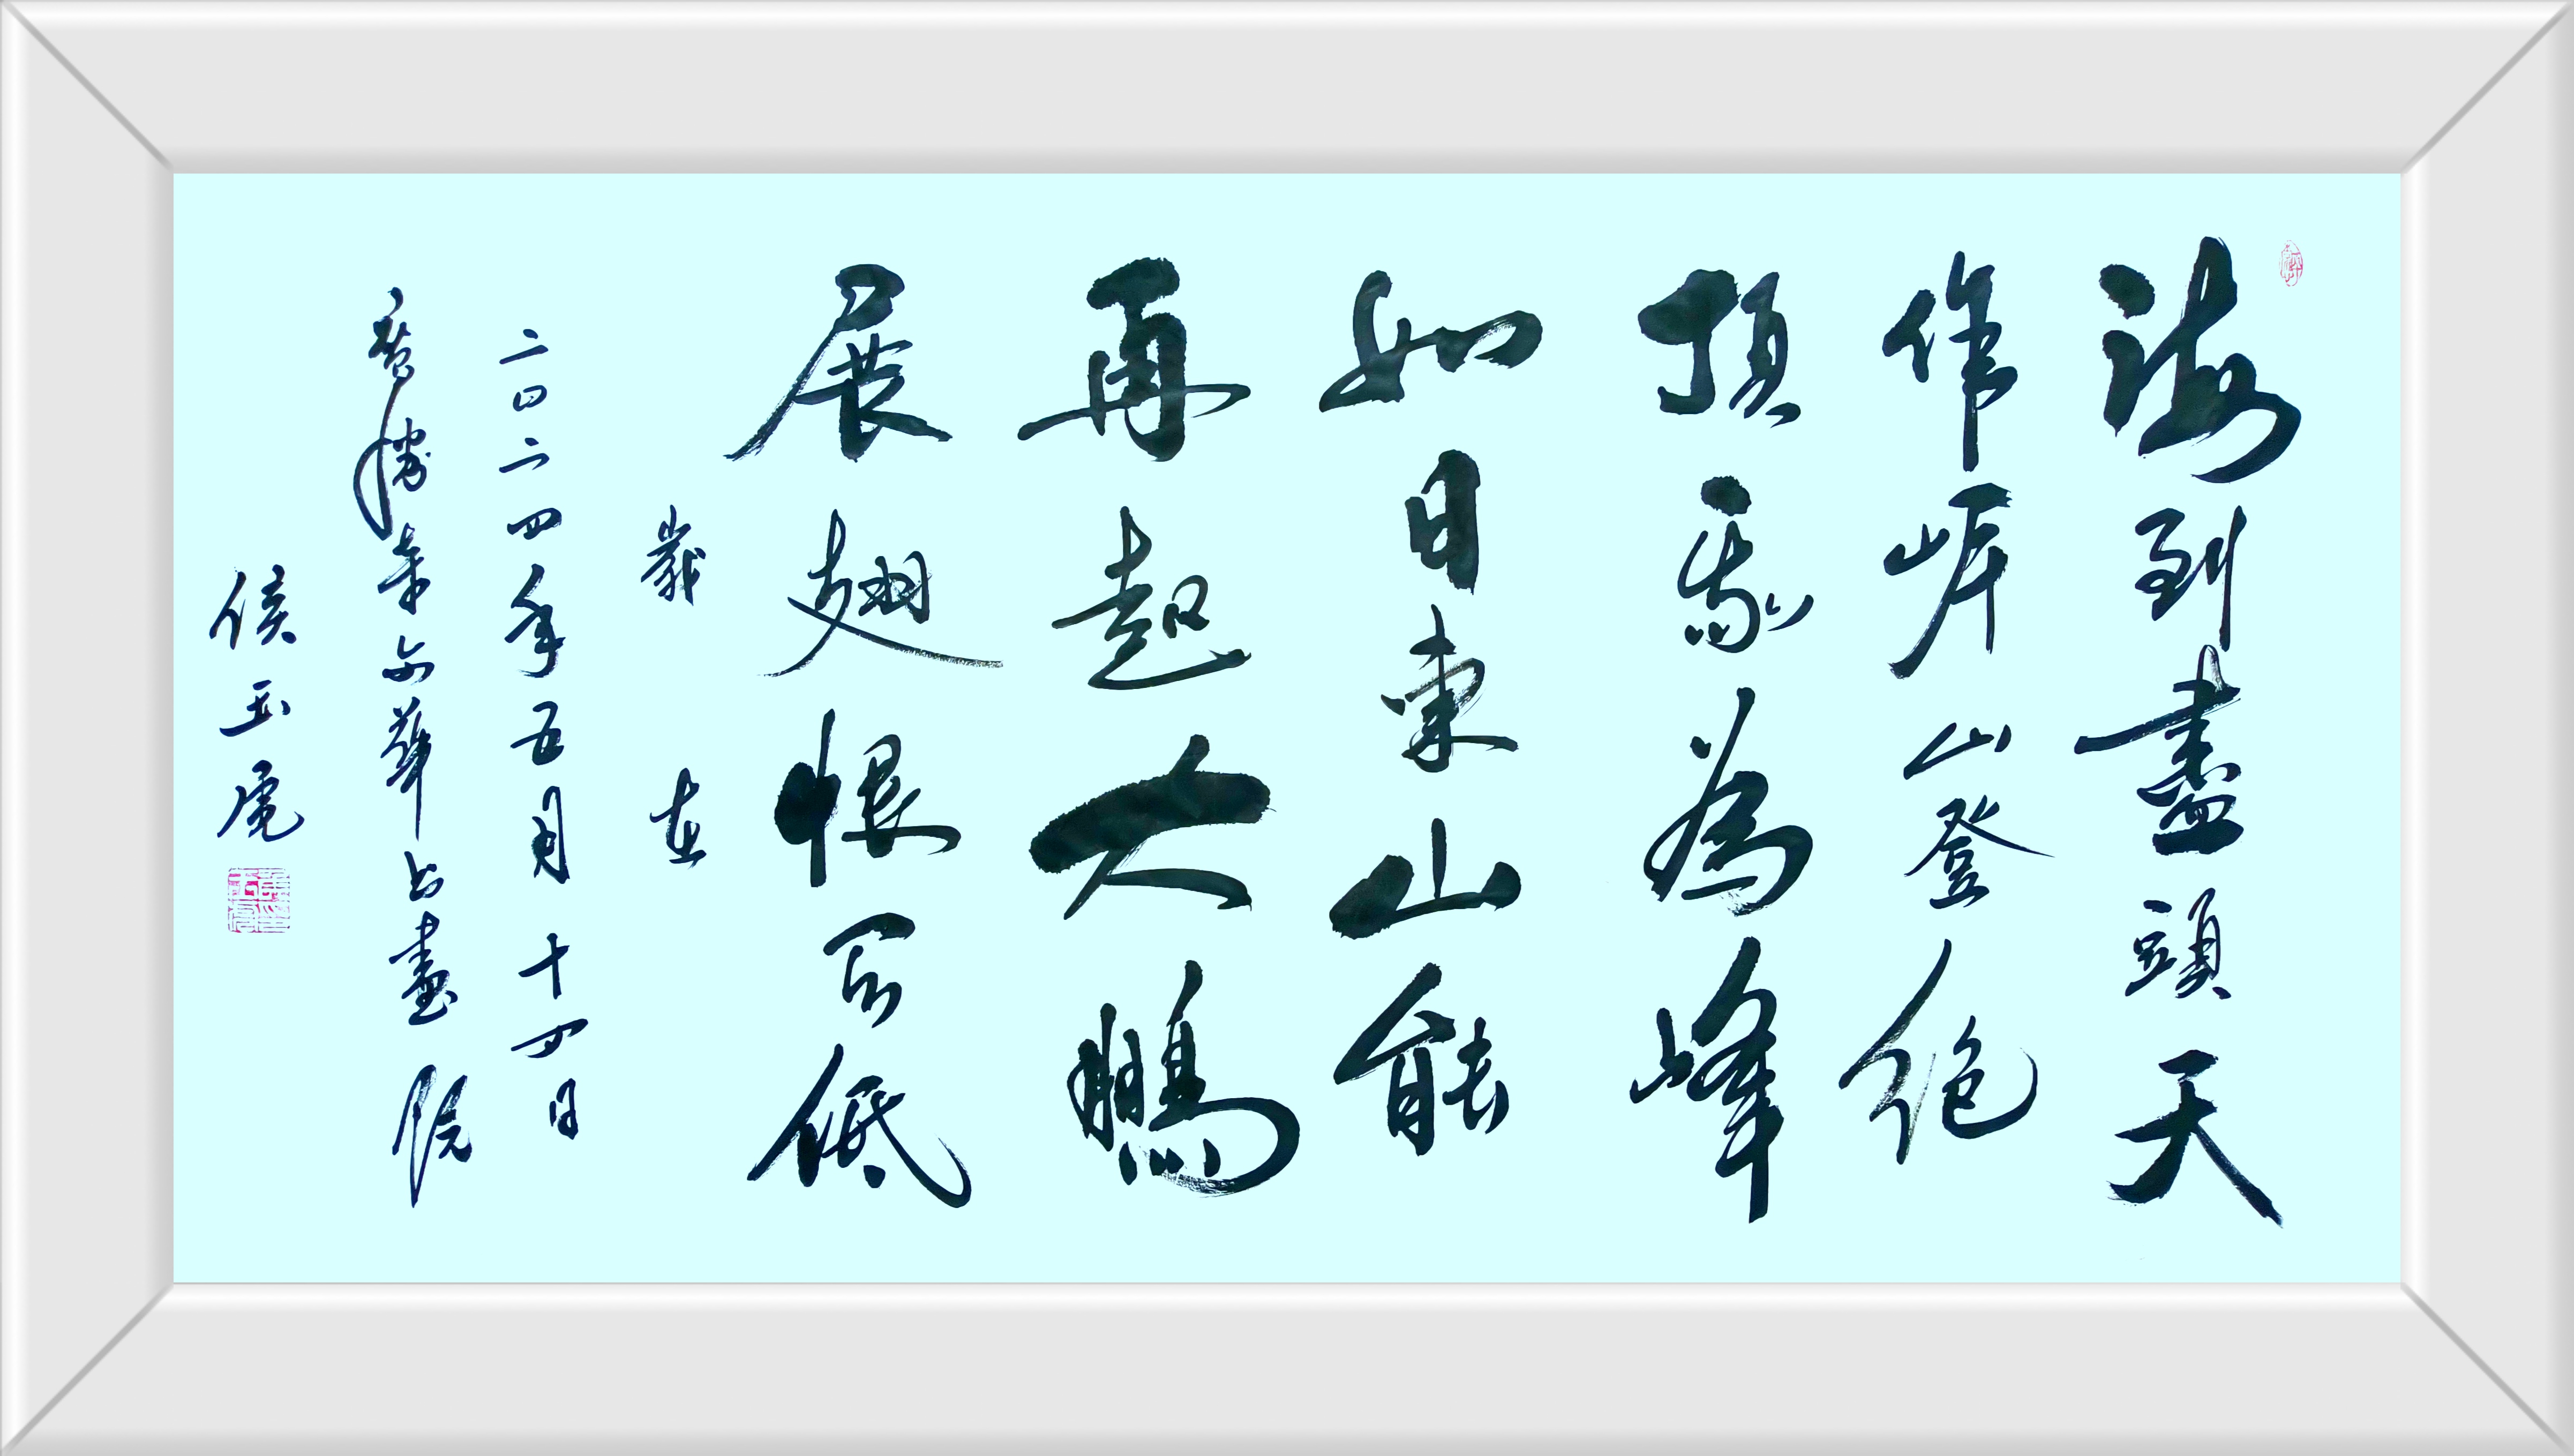 海到盡頭天
作岸山登絕
頂我為峰
如日東山能
再起大鵬
展翅恨天低
歲在
二〇二四年五月十四日
華书畫院
侯玉虎